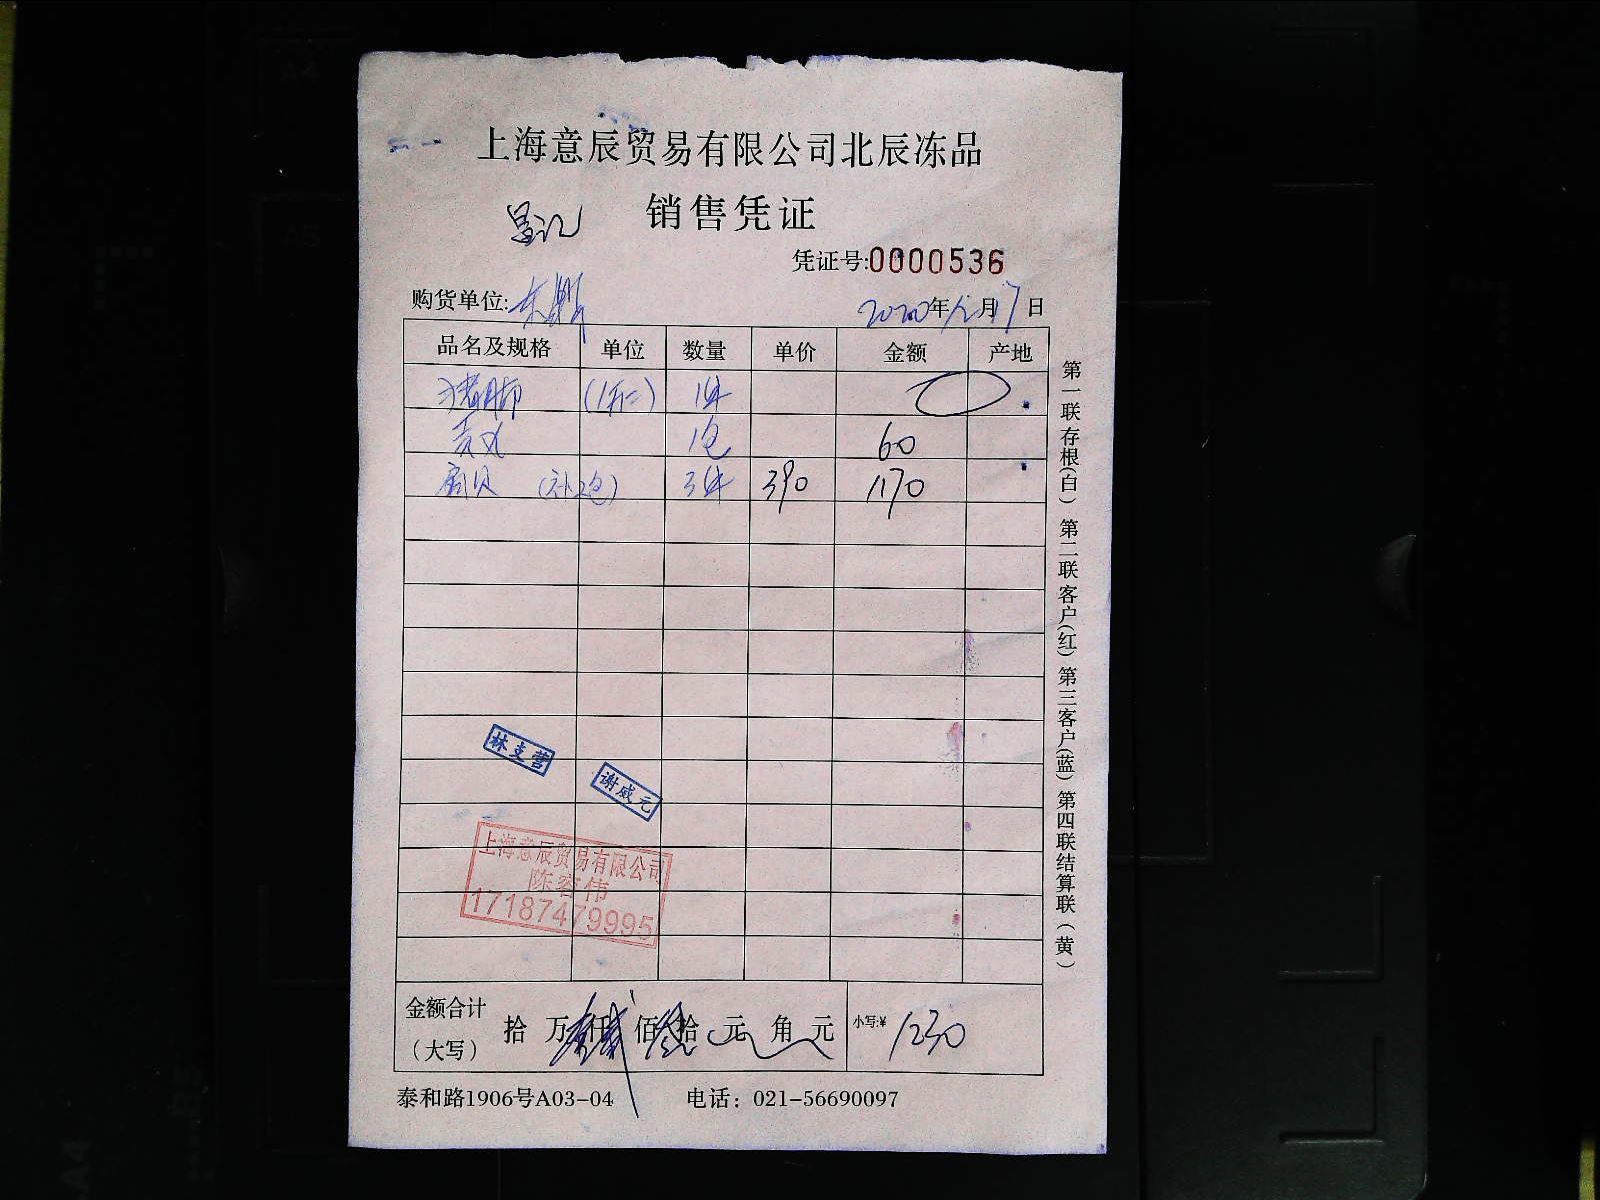 上海意辰贸易有限公司北辰冻品
销售凭证
凭证号:0000536
购货单位:
2020年12月17日
品名及规格 单位 数量 单价 金额 产地
猪肺 1件
1包 60
扇贝 (补2包) 3件 390 1170
林支营
谢威元
上海意辰贸易有限公司
陈容伟
17187479995
金额合计
(大写)
拾 万 仟 佰 拾 元 角 元
小写:¥ 1230
泰和路1906号A03-04 电话：021-56690097
第一联存根(白) 第二联客户(红) 第三客户(蓝) 第四联结算联(黄)